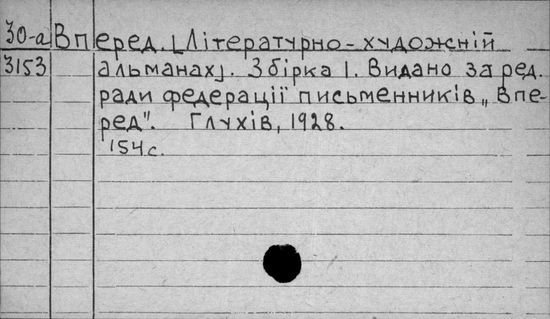 30-а Вперед. [Літературно-художній
3153 альманах]. Збірка 1. Видано за ред.
ради федерації письменників „Впе-
ред". Глухів, 1928.
154 с.